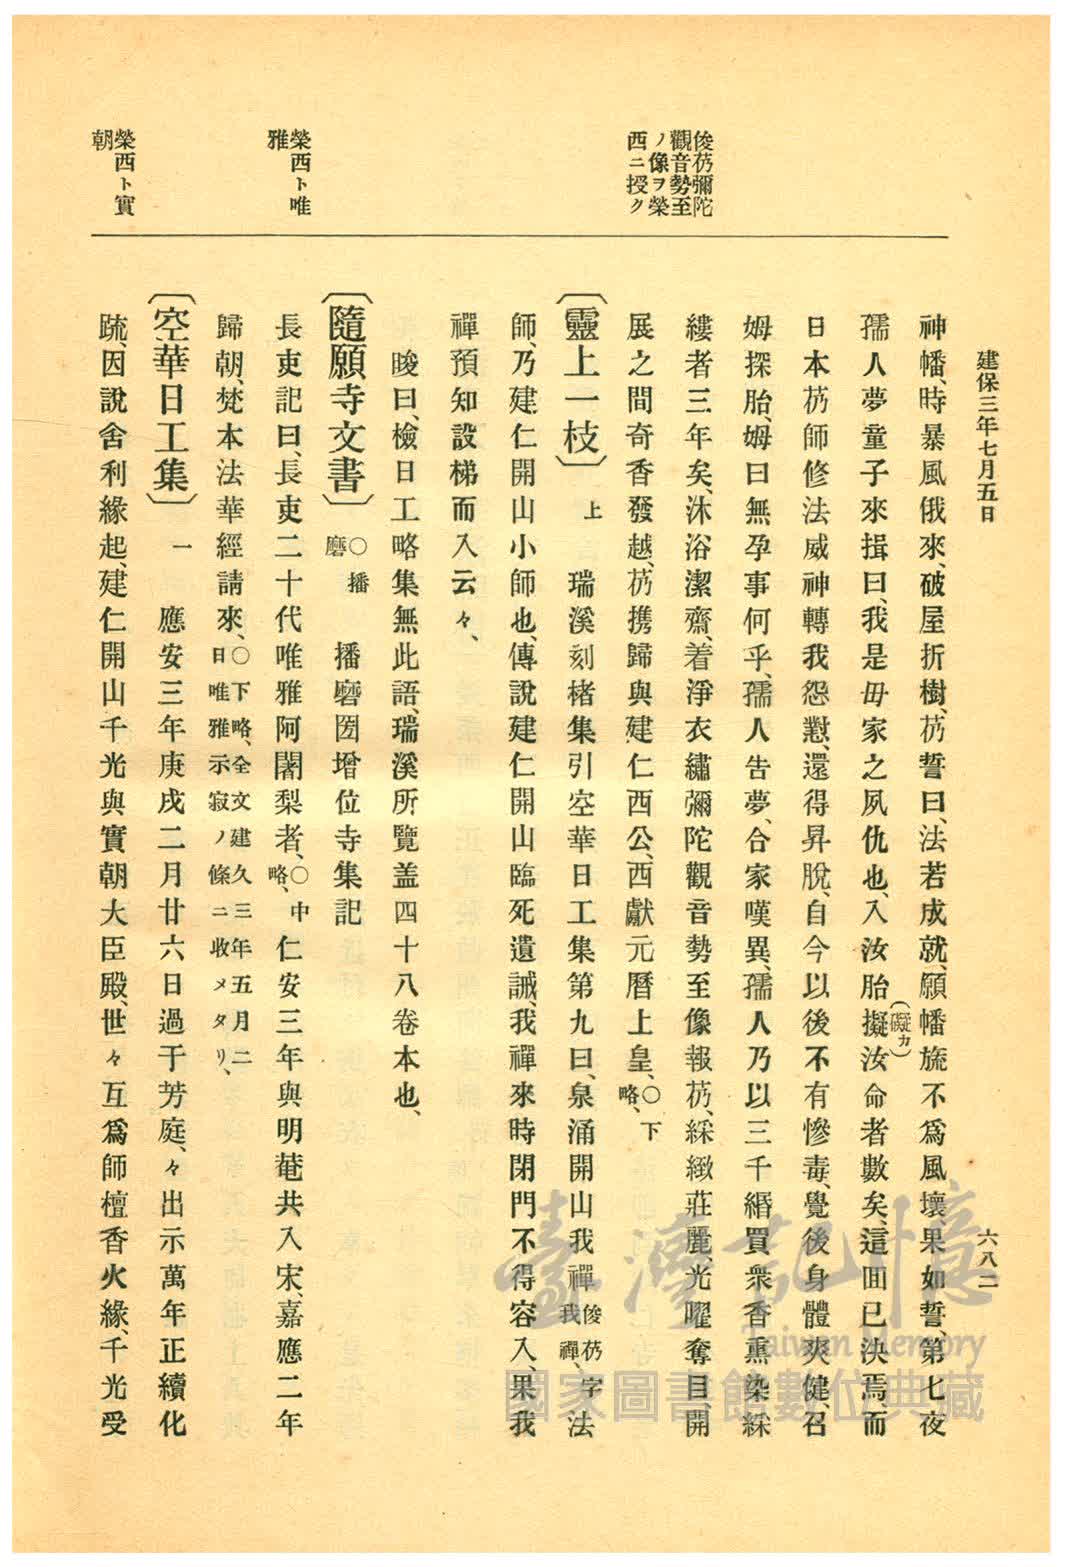 建保三年七月五日
六八二
俊芿彌陀
觀音勢至
ノ像ヲ榮
西ニ授ク
榮西ト唯
雅
榮西ト實
朝
神幡、時暴風俄來、破屋折樹、芿誓曰、法若成就、願幡旒不爲風壞、果如誓、第七夜
孺人夢童子來揖曰、我是毋家之夙仇也、入汝胎擬(礙カ)汝命者數矣、這囬已決焉、而
日本芿師修法威神轉我怨懟、還得昇脫、自今以後不有慘毒、覺後身體爽健、召
姆探胎、姆曰無孕事何乎、孺人告夢、合家嘆異、孺人乃以三千緡買衆香熏染綵
縷者三年矣、沐浴潔齋、着淨衣繡彌陀觀音勢至像報芿、綵緻莊麗、光曜奪目、開
展之間奇香發越、芿携歸與建仁西公、西獻元曆上皇、〇下略、
〔靈上一枝〕上 瑞溪刻楮集引空華日工集第九曰、泉涌開山我禪俊芿字我禪、法
師、乃建仁開山小師也、傳說建仁開山臨死遺誡、我禪來時閉門不得容入、果我
禪預知設梯而入云々、
晙曰、檢日工略集無此語、瑞溪所覽盖四十八卷本也、
〔隨願寺文書〕〇播磨 播磨圀增位寺集記
長吏記曰、長吏二十代唯雅阿闍梨者、〇中略、仁安三年與明菴共入宋、嘉應二年
歸朝、梵本法華經請來、〇下略、全文建久三年五月二日唯雅示寂ノ條ニ收メタリ、
〔空華日工集〕一 應安三年庚戌二月廿六日過于芳庭、々出示萬年正續化
䟽、因說舍利緣起、建仁開山千光與實朝大臣殿、世々互爲師檀香火緣、千光受
臺灣記憶
Taiwan Memory
國家圖書館數位典藏